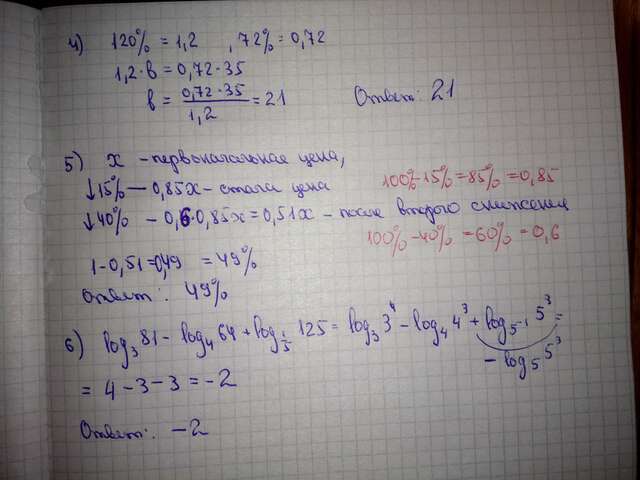 4) 120% = 1,2 , 72% = 0,72
1,2·в = 0,72·35
в = 0,72·35 / 1,2 = 21
Ответ: 21
5) x - первоначальная цена,
↓15% — 0,85x - стала цена
100% - 15% = 85% = 0,85
↓40% - 0,6·0,85x = 0,51x - после второго снижения
100% - 40% = 60% = 0,6
1 - 0,51 = 0,49 = 49%
Ответ: 49%
6) log₃ 81 - log₄ 64 + log_{1/5} 125 = log₃ 3⁴ - log₄ 4³ + log_{5⁻¹} 5³ =
- log₅ 5³
= 4 - 3 - 3 = -2
Ответ: -2